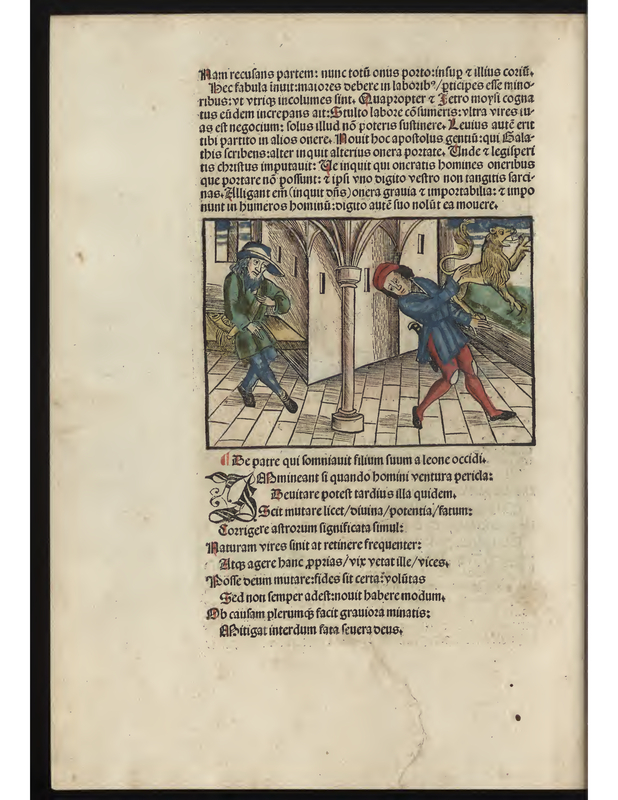 Nam recusans partem: nunc totū onus porto: insuꝑ ⁊ illius coriū.
Hec fabula inuit: maiores debere in laborib⁹/ ꝑticipes esse mino-
ribus: vt vtriq incolumes sint. Quapropter ⁊ Jetro moysi cogna
tus eūdem increpans ait: Stulto labore cōsumeris: vltra vires tu-
as est negocium: solus illud nō poteris sustinere. Leuius autē erit
tibi partito in alios onere. Nouit hoc apostolus gentiū: qui Gala-
this scribens: alter inquit alterius onera portate. Unde ⁊ legisperi
tis christus imputauit: Ue inquit qui oneratis homines oneribus
que portare nō possunt: ⁊ ipsi vno digito vestro non tangitis sarci-
nas. Alligant em (inquit dn̄s) onera grauia ⁊ importabilia: ⁊ impo
nunt in humeros hominū: digito autē suo nolūt ea mouere.
De patre qui somniauit filium suum a leone occidi.
Immineant si quando homini ventura pericla:
Deuitare potest tardius illa quidem.
Scit mutare licet/ diuina/ potentia/ fatum:
Corrigere astrorum significata simul:
Naturam vires sinit at retinere frequenter:
Atq̄ agere hanc ꝓprias/ vix vetat ille/ vices.
Posse deum mutare: fides sit certa: volūtas
Sed non semper adest: nouit habere modum.
Ob causam plerumq̄ facit grauiora minatis:
Mitigat interdum fata seuera deus.